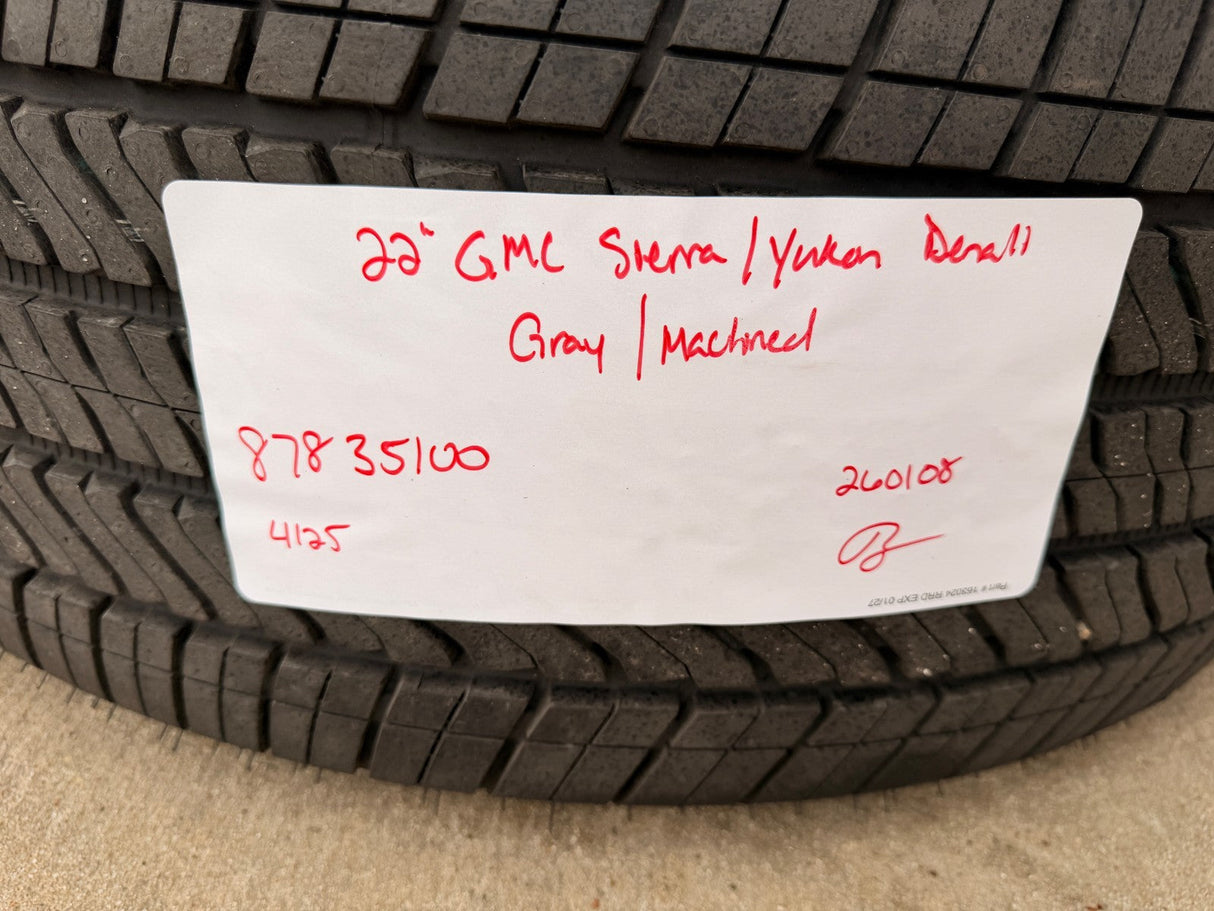 22" GMC Sierra/Yukon Denali
Gray/Machined
878 35100
260108
4125
Part # 163024 RRD EXP 01/27